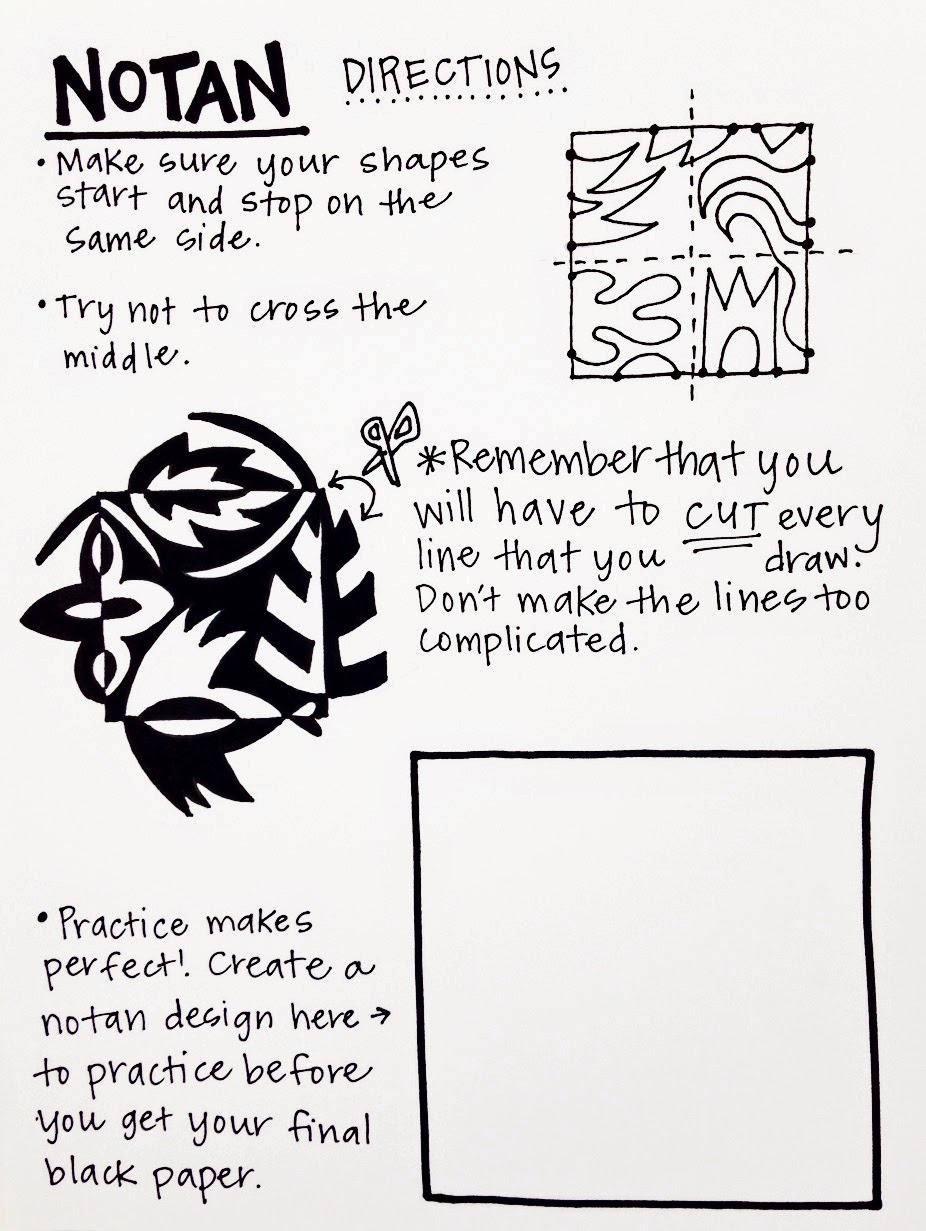 NOTAN DIRECTIONS
• Make sure your shapes
start and stop on the
same side.
• Try not to cross the
middle.
*Remember that you
will have to CUT every
line that you draw.
Don't make the lines too
complicated.
• Practice makes
perfect! Create a
notan design here →
to practice before
you get your final
black paper.